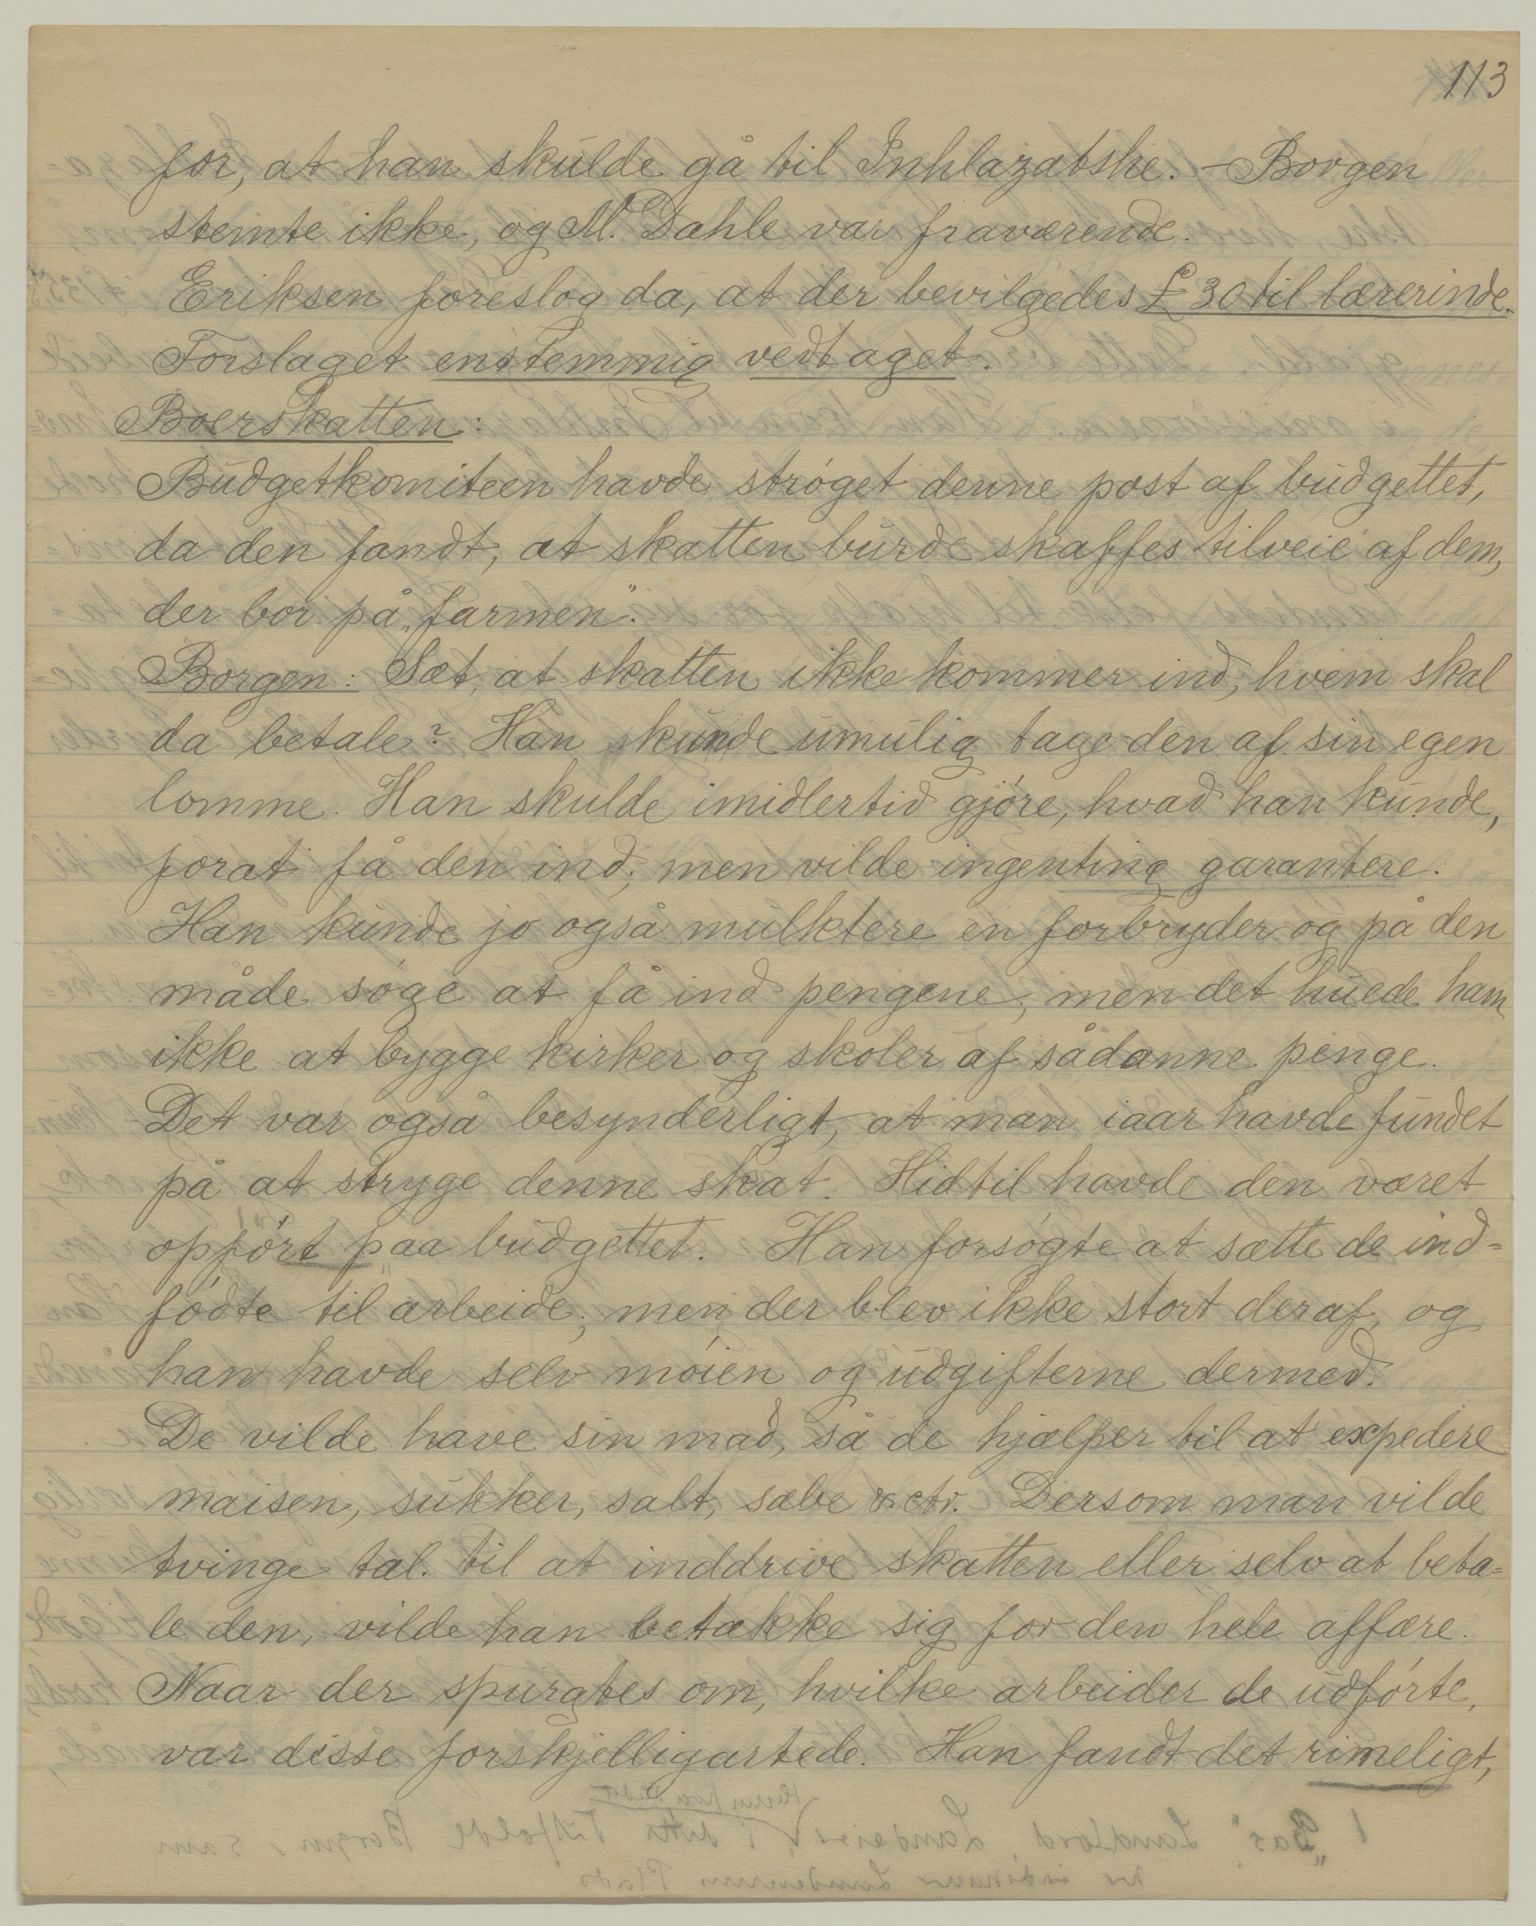 113
for, at han skulde gå til Inhlazatshe. – Borgen
stemte ikke, og M. Dahle var fraværende.
Eriksen foreslog da, at der bevilgedes £ 30 til lærerinde.
Forslaget enstemmig vedtaget.
Boerskatten:
Budgetkomiteen havde strøget denne post af budgettet,
da den fandt, at skatten burde skaffes tilveie af dem,
der bor på „farmen".
Borgen: Sæt, at skatten ikke kommer ind, hvem skal
da betale? Han kunde umulig tage den af sin egen
lomme. Han skulde imidlertid gjøre, hvad han kunde,
forat få den ind; men vilde ingenting garantere.
Han kunde jo også mulktere en forbryder og på den
måde søge at få ind pengene, men det huede ham
ikke at bygge kirker og skoler af sådanne penge.
Det var også besynderligt, at man iaar havde fundet
på at stryge denne skat. Hidtil havde den været
opført paa budgettet. Han forsøgte at sætte de ind=
fødte til arbeide; men der blev ikke stort deraf, og
han havde selv møien og udgifterne dermed.
De vilde have sin mad, så de hjælper til at expedere
maisen, sukker, salt, sæbe & ctr. Dersom man vilde
tvinge tal. til at inddrive skatten eller selv at beta=
le den, vilde han betakke sig for den hele affære.
Naar der spurgtes om, hvilke arbeider de udførte,
var disse forskjelligartede. Han fandt det rimeligt,